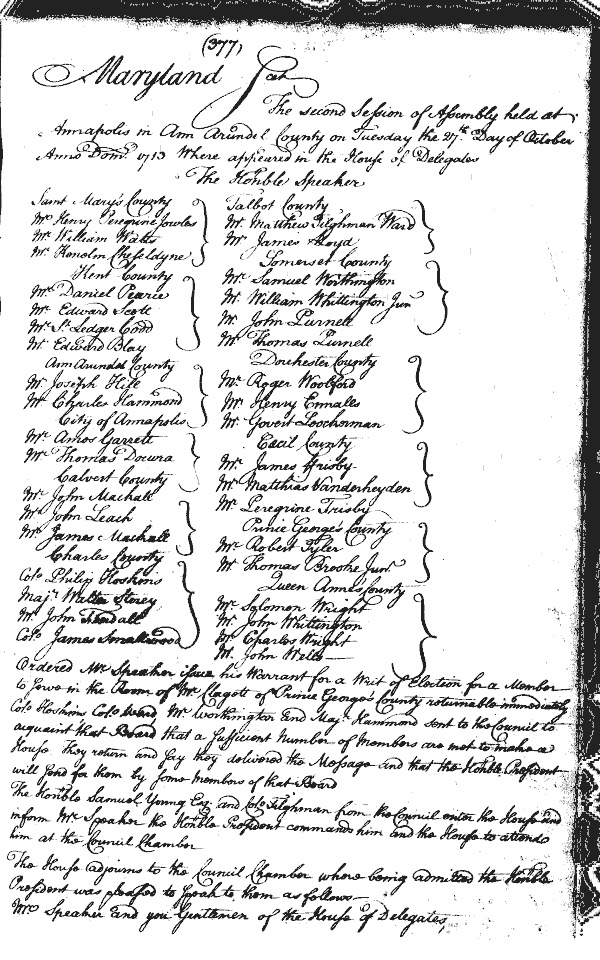 (377)
Maryland Sct
The second Session of Assembly held at
Annapolis in Ann Arundel County on Tuesday the 27th Day of October
Anno Domi 1713 Where appeared in the House of Delegates
The Honble Speaker
Saint Mary's County
Mr Henry Peregrine Jowles
Mr William Watts
Mr Kenelm Cheseldyne
Kent County
Mr Daniel Pearce
Mr Edward Scott
Mr St Ledger Codd
Mr Edward Blay
Ann Arundel County
Mr Joseph Hill
Mr Charles Hammond
City of Annapolis
Mr Amos Garrett
Mr Thomas Docura
Calvert County
Mr John Mackall
Mr John Leach
Mr James Mackall
Charles County
Colo Philip Hoskins
Majr Walter Storey
Mr John Fendall
Colo James Smallwood
Talbot County
Mr Matthew Tilghman Ward
Mr James Lloyd
Somerset County
Mr Samuel Worthington
Mr William Whittington Junr
Mr John Purnell
Mr Thomas Purnell
Dorchester County
Mr Roger Woolford
Mr Henry Ennalls
Mr Govert Loockerman
Cecil County
Mr James Frisby
Mr Matthias Vanderheyden
Mr Peregrine Frisby
Prince George's County
Mr Robert Tyler
Mr Thomas Brooke Junr
Queen Anne's County
Mr Solomon Wright
Mr John Whittington
Mr Charles Wright
Mr John Wells
Ordered Mr Speaker issue his Warrant for a Writ of Election for a Member
to serve in the Room of Mr Clagett of Prince George's County returnable immediately
Colo Hoskins Colo Ward Mr Worthington and Majr Hammond sent to the Council to
acquaint that Board that a sufficient Number of Members are met to make a
House they return and say they delivered the Message and that the Honble President
will send for them by some Members of that Board
The Honble Samuel Young Esq and Colo Tilghman from the Council enter the House and
inform Mr Speaker the Honble President commands him and the House to attend
him at the Council Chamber
The House adjourns to the Council Chamber where being admitted the Honble
President was pleased to speak to them as follows
Mr Speaker and you Gentlemen of the House of Delegates,